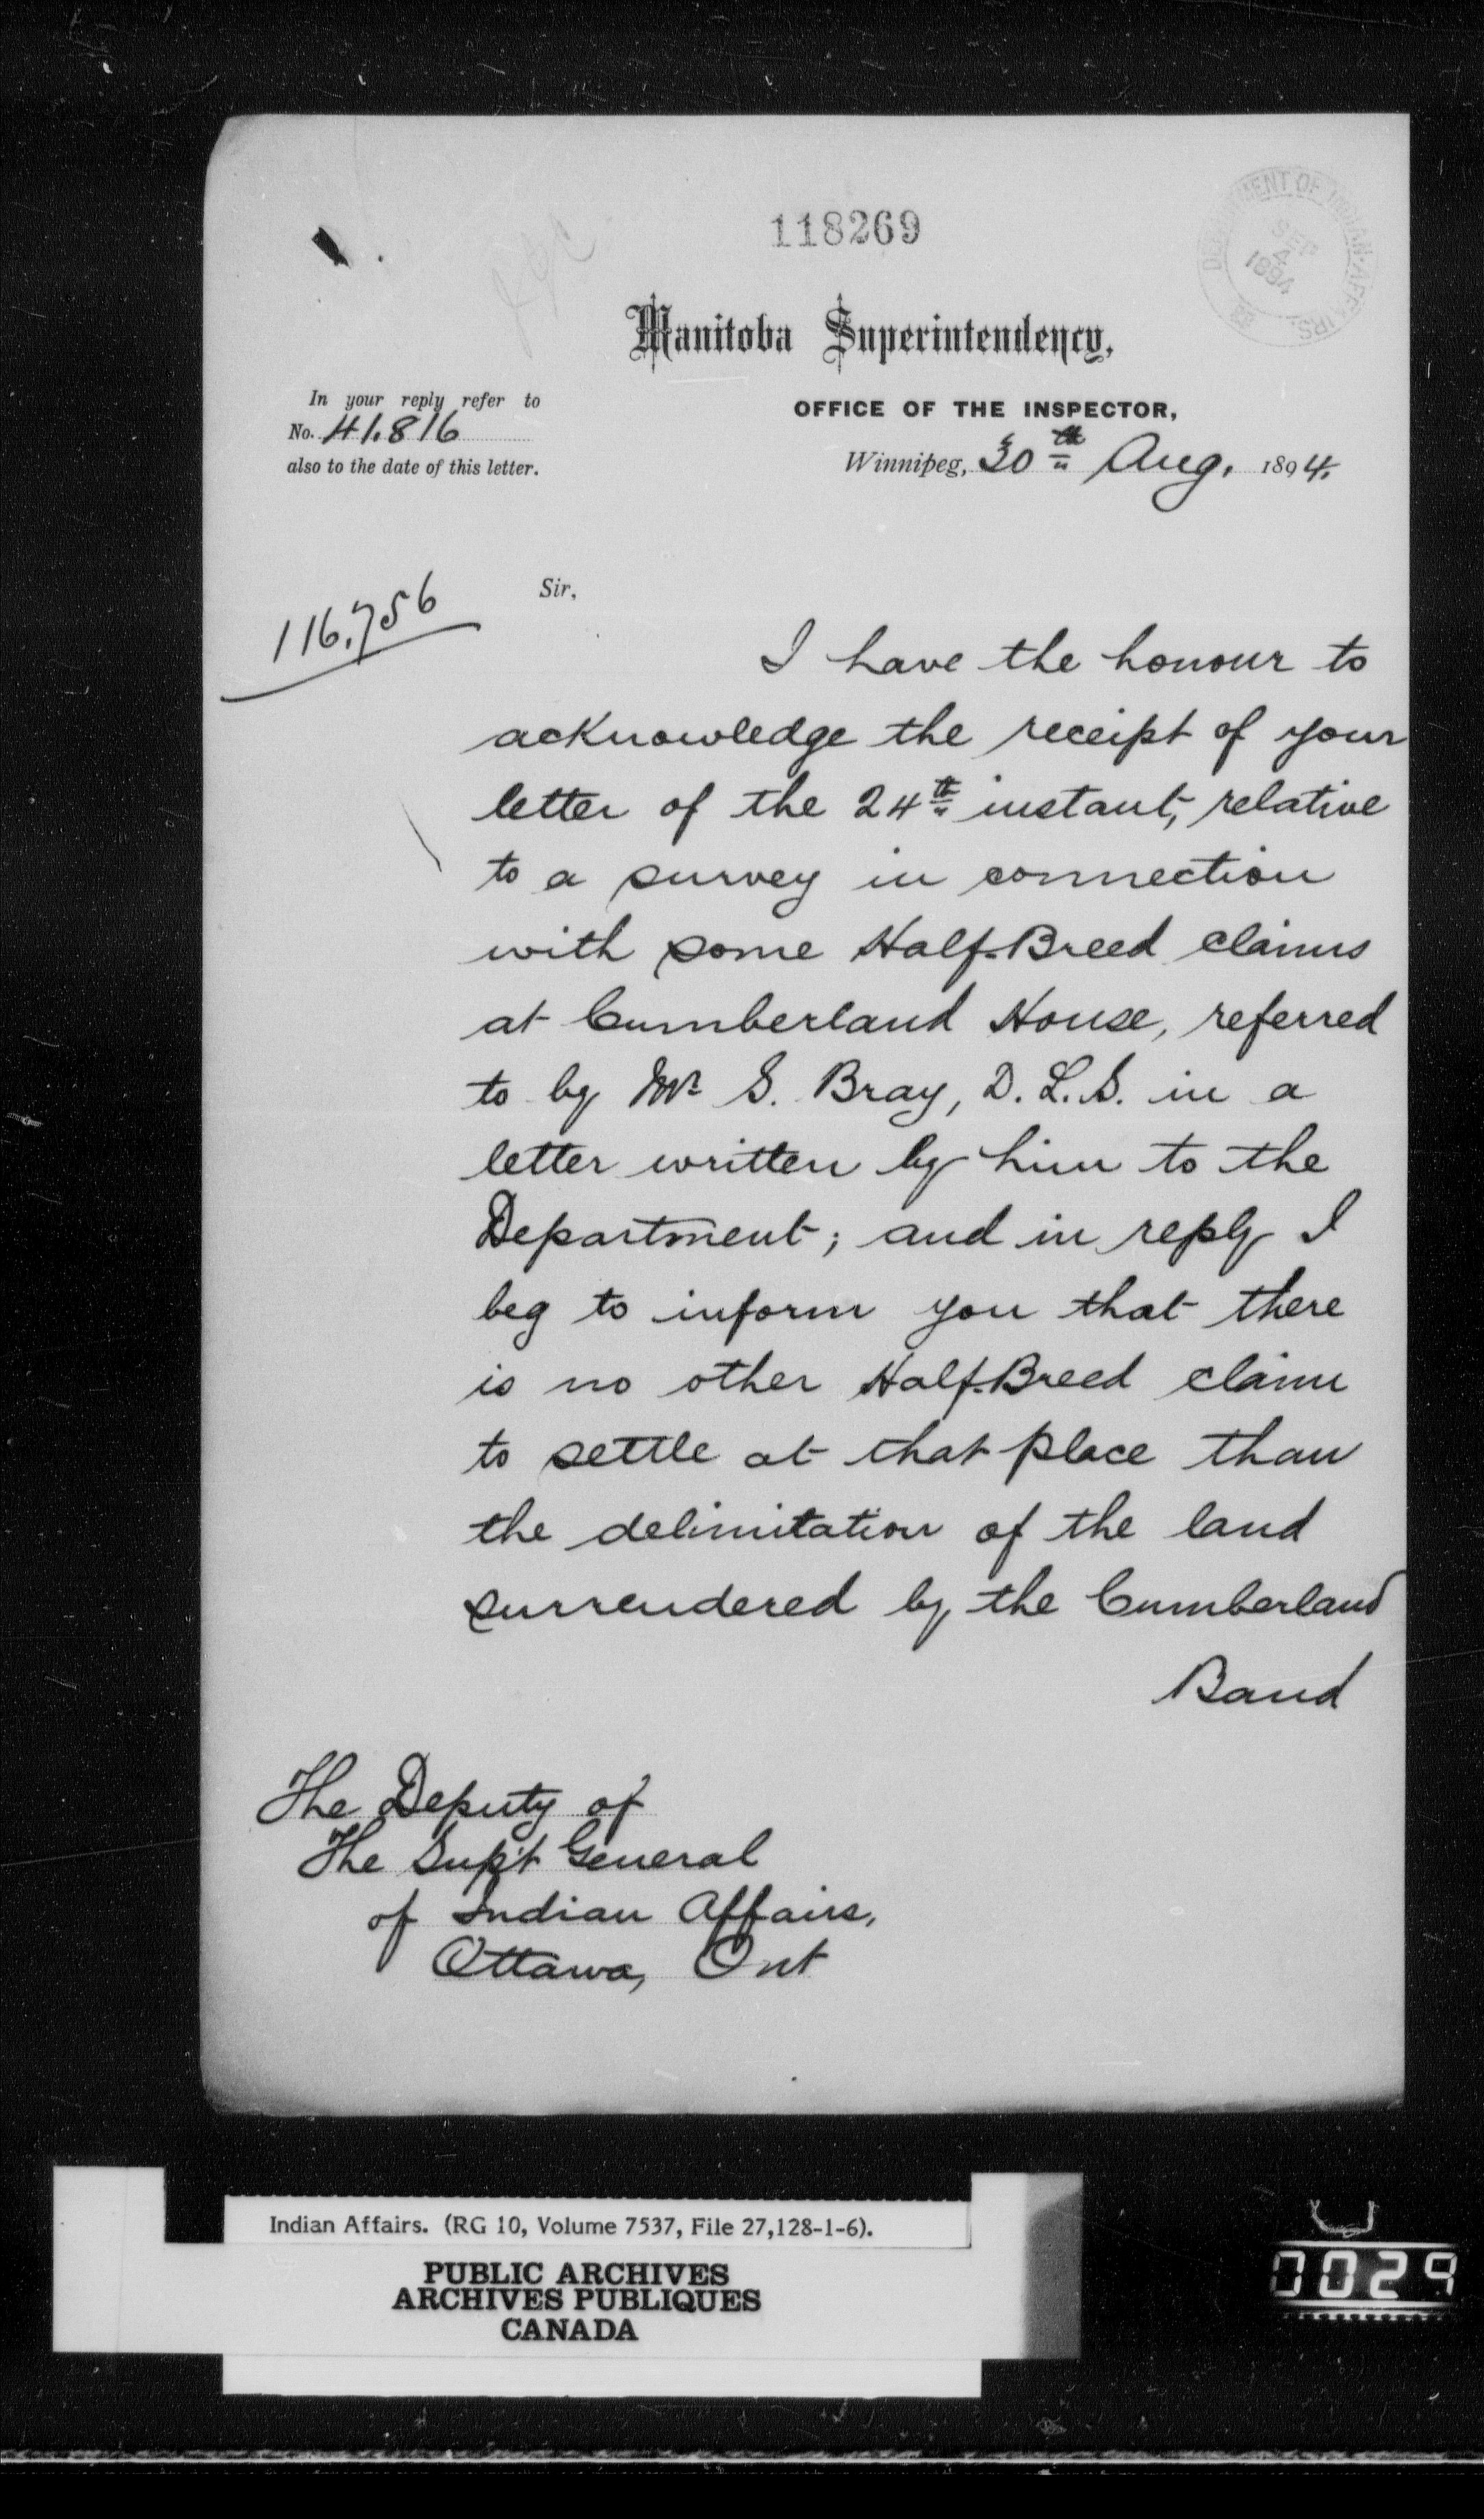 118269
DEPARTMENT OF INDIAN AFFAIRS.
SEP
4
1894
Manitoba Superintendency,
In your reply refer to
No. 41.816
also to the date of this letter.
OFFICE OF THE INSPECTOR,
Winnipeg, 30th Aug. 1894.
116.756
Sir,
I have the honour to
acknowledge the receipt of your
letter of the 24th instant, relative
to a survey in connection
with some Half-Breed claims
at Cumberland House, referred
to by Mr S. Bray, D. L. S. in a
letter written by him to the
Department; and in reply I
beg to inform you that there
is no other Half-Breed claim
to settle at that place than
the delimitation of the land
surrendered by the Cumberland
Band
The Deputy of
The Sup't General
of Indian Affairs,
Ottawa, Ont
Indian Affairs. (RG 10, Volume 7537, File 27,128-1-6).
PUBLIC ARCHIVES
ARCHIVES PUBLIQUES
CANADA
0029